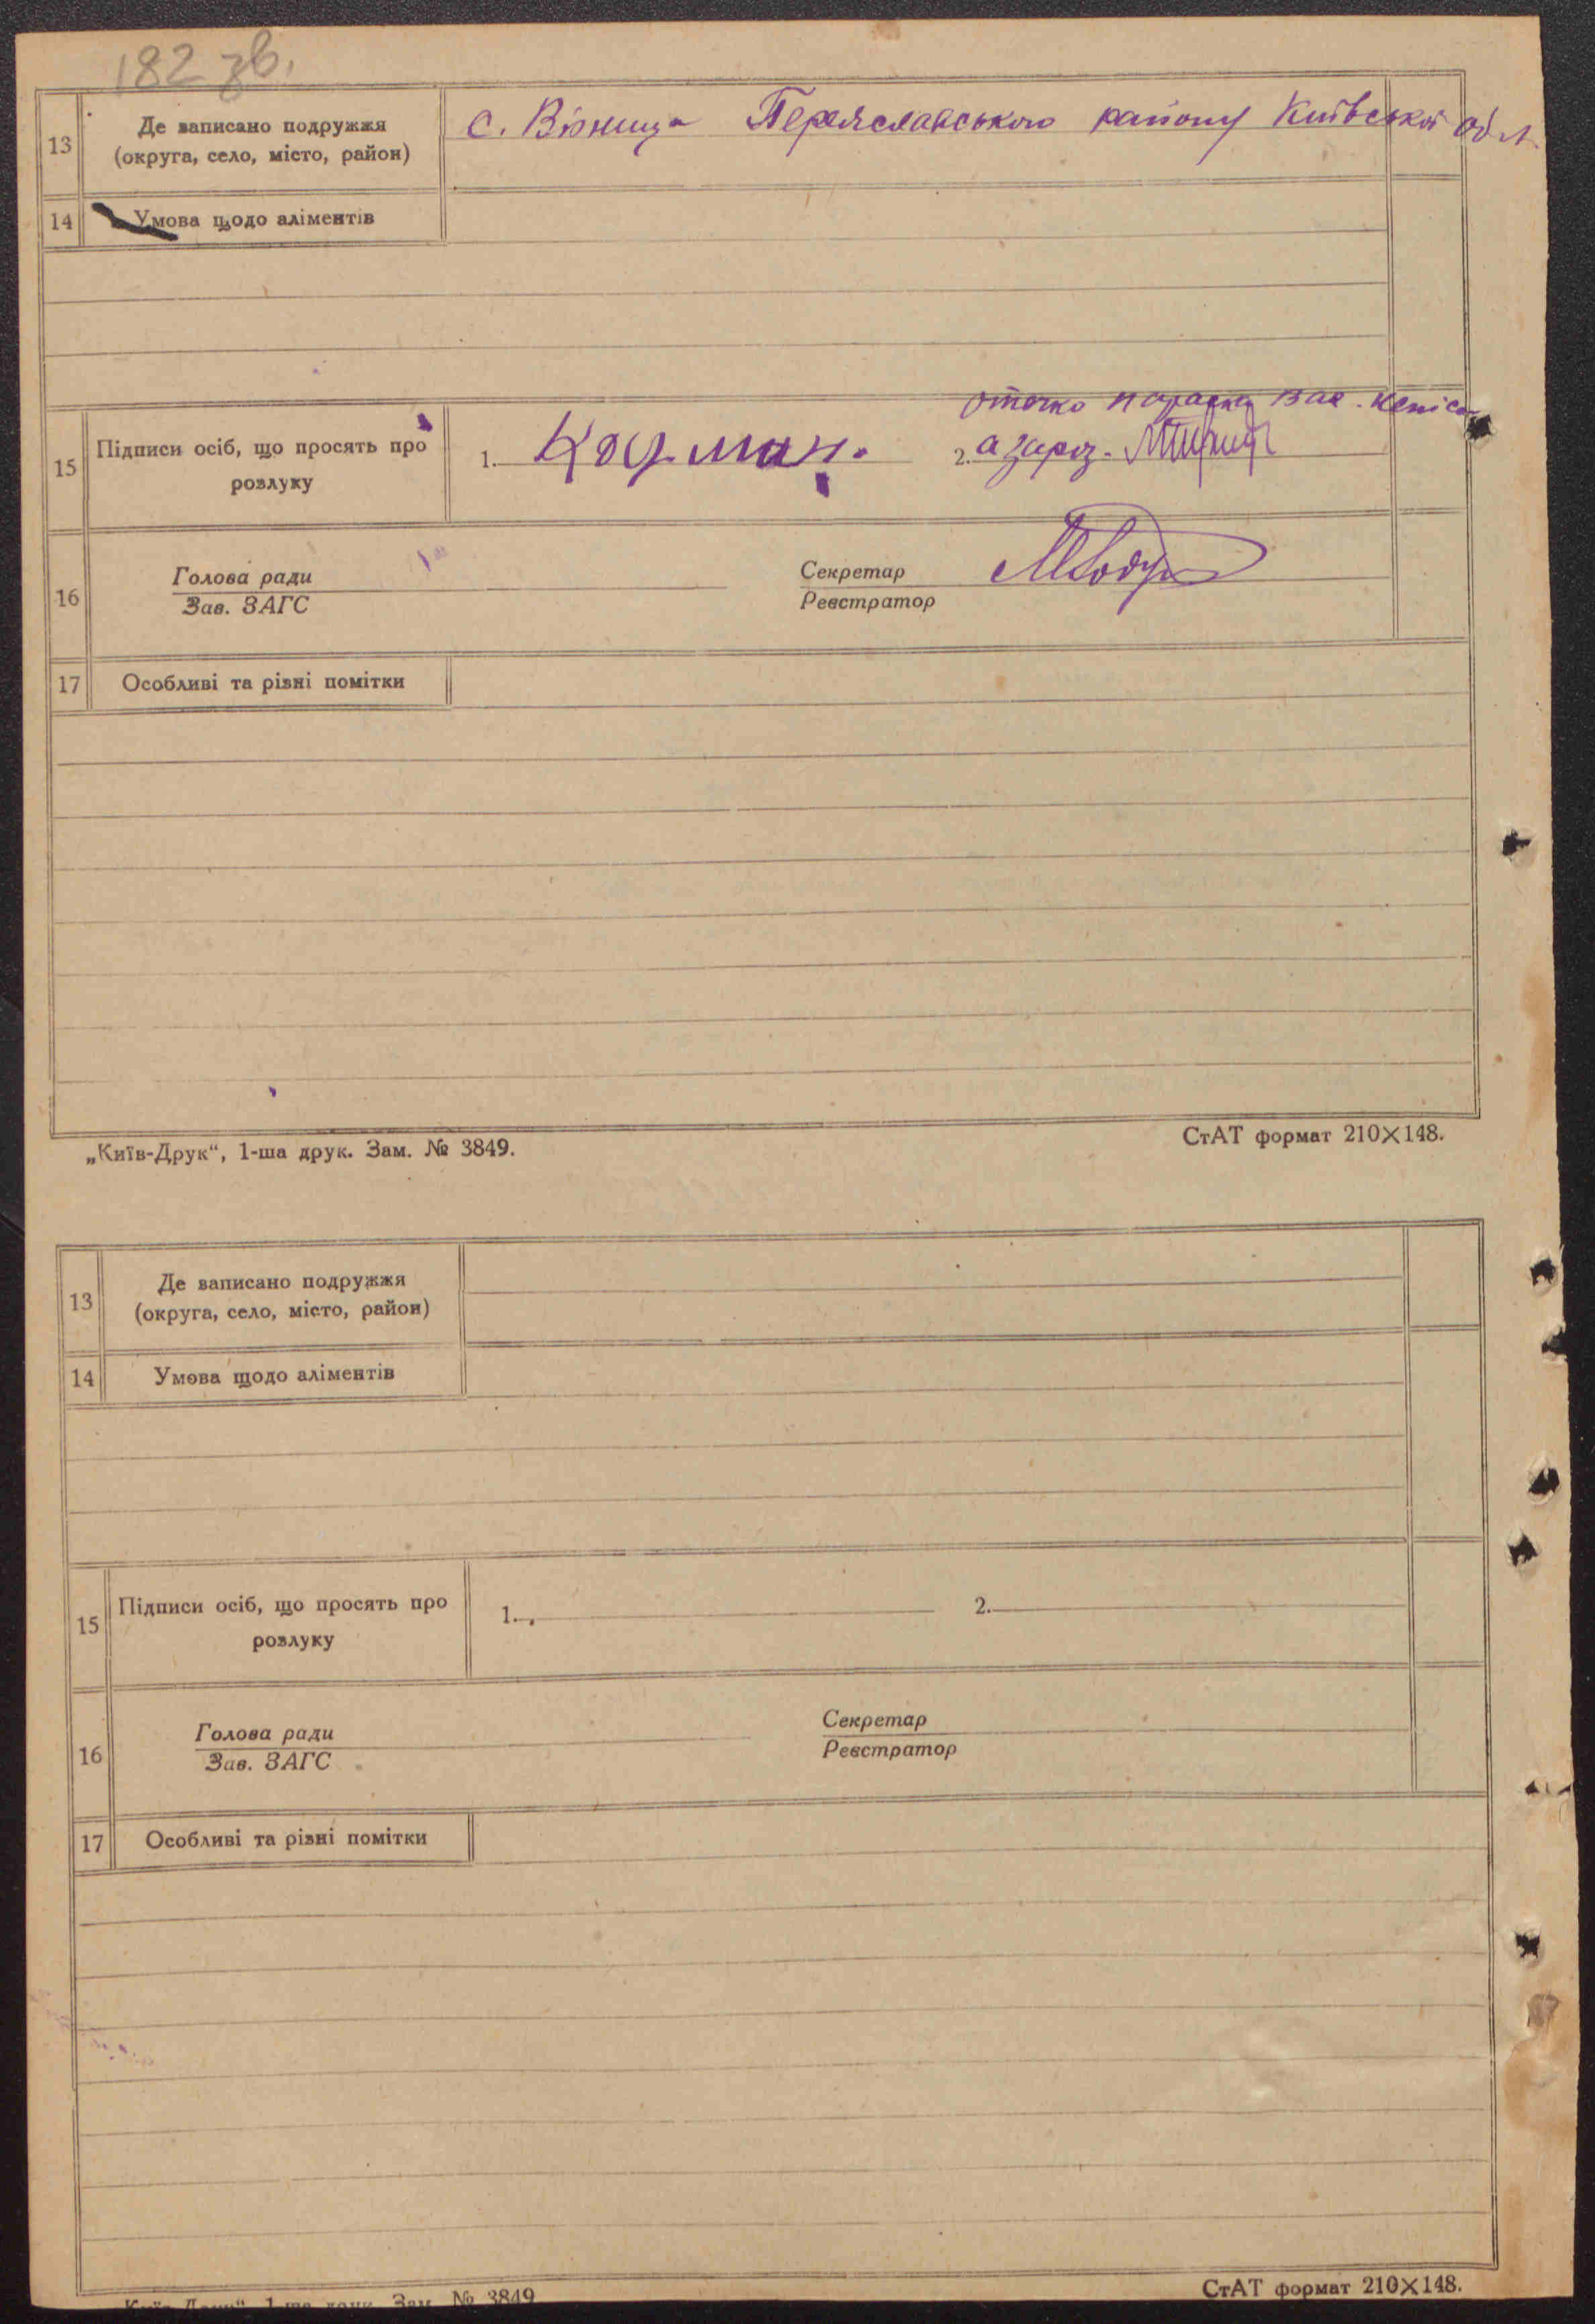 182 зв.
13
Де записано подружжя
(округа, село, місто, район)
с. Віниця Переяславського району Київської обл.
14
Умова щодо аліментів
15
Підписи осіб, що просять про
розлуку
1.
2. а
16
Голова ради
Зав. ЗАГС
Секретар
Реєстратор
17
Особливі та різні помітки
„Київ-Друк“, 1-ша друк. Зам. № 3849.
СтАТ формат 210×148.
13
Де записано подружжя
(округа, село, місто, район)
14
Умова щодо аліментів
15
Підписи осіб, що просять про
розлуку
1.
2.
16
Голова ради
Зав. ЗАГС
Секретар
Реєстратор
17
Особливі та різні помітки
„Київ-Друк“, 1-ша друк. Зам. № 3849
СтАТ формат 210×148.